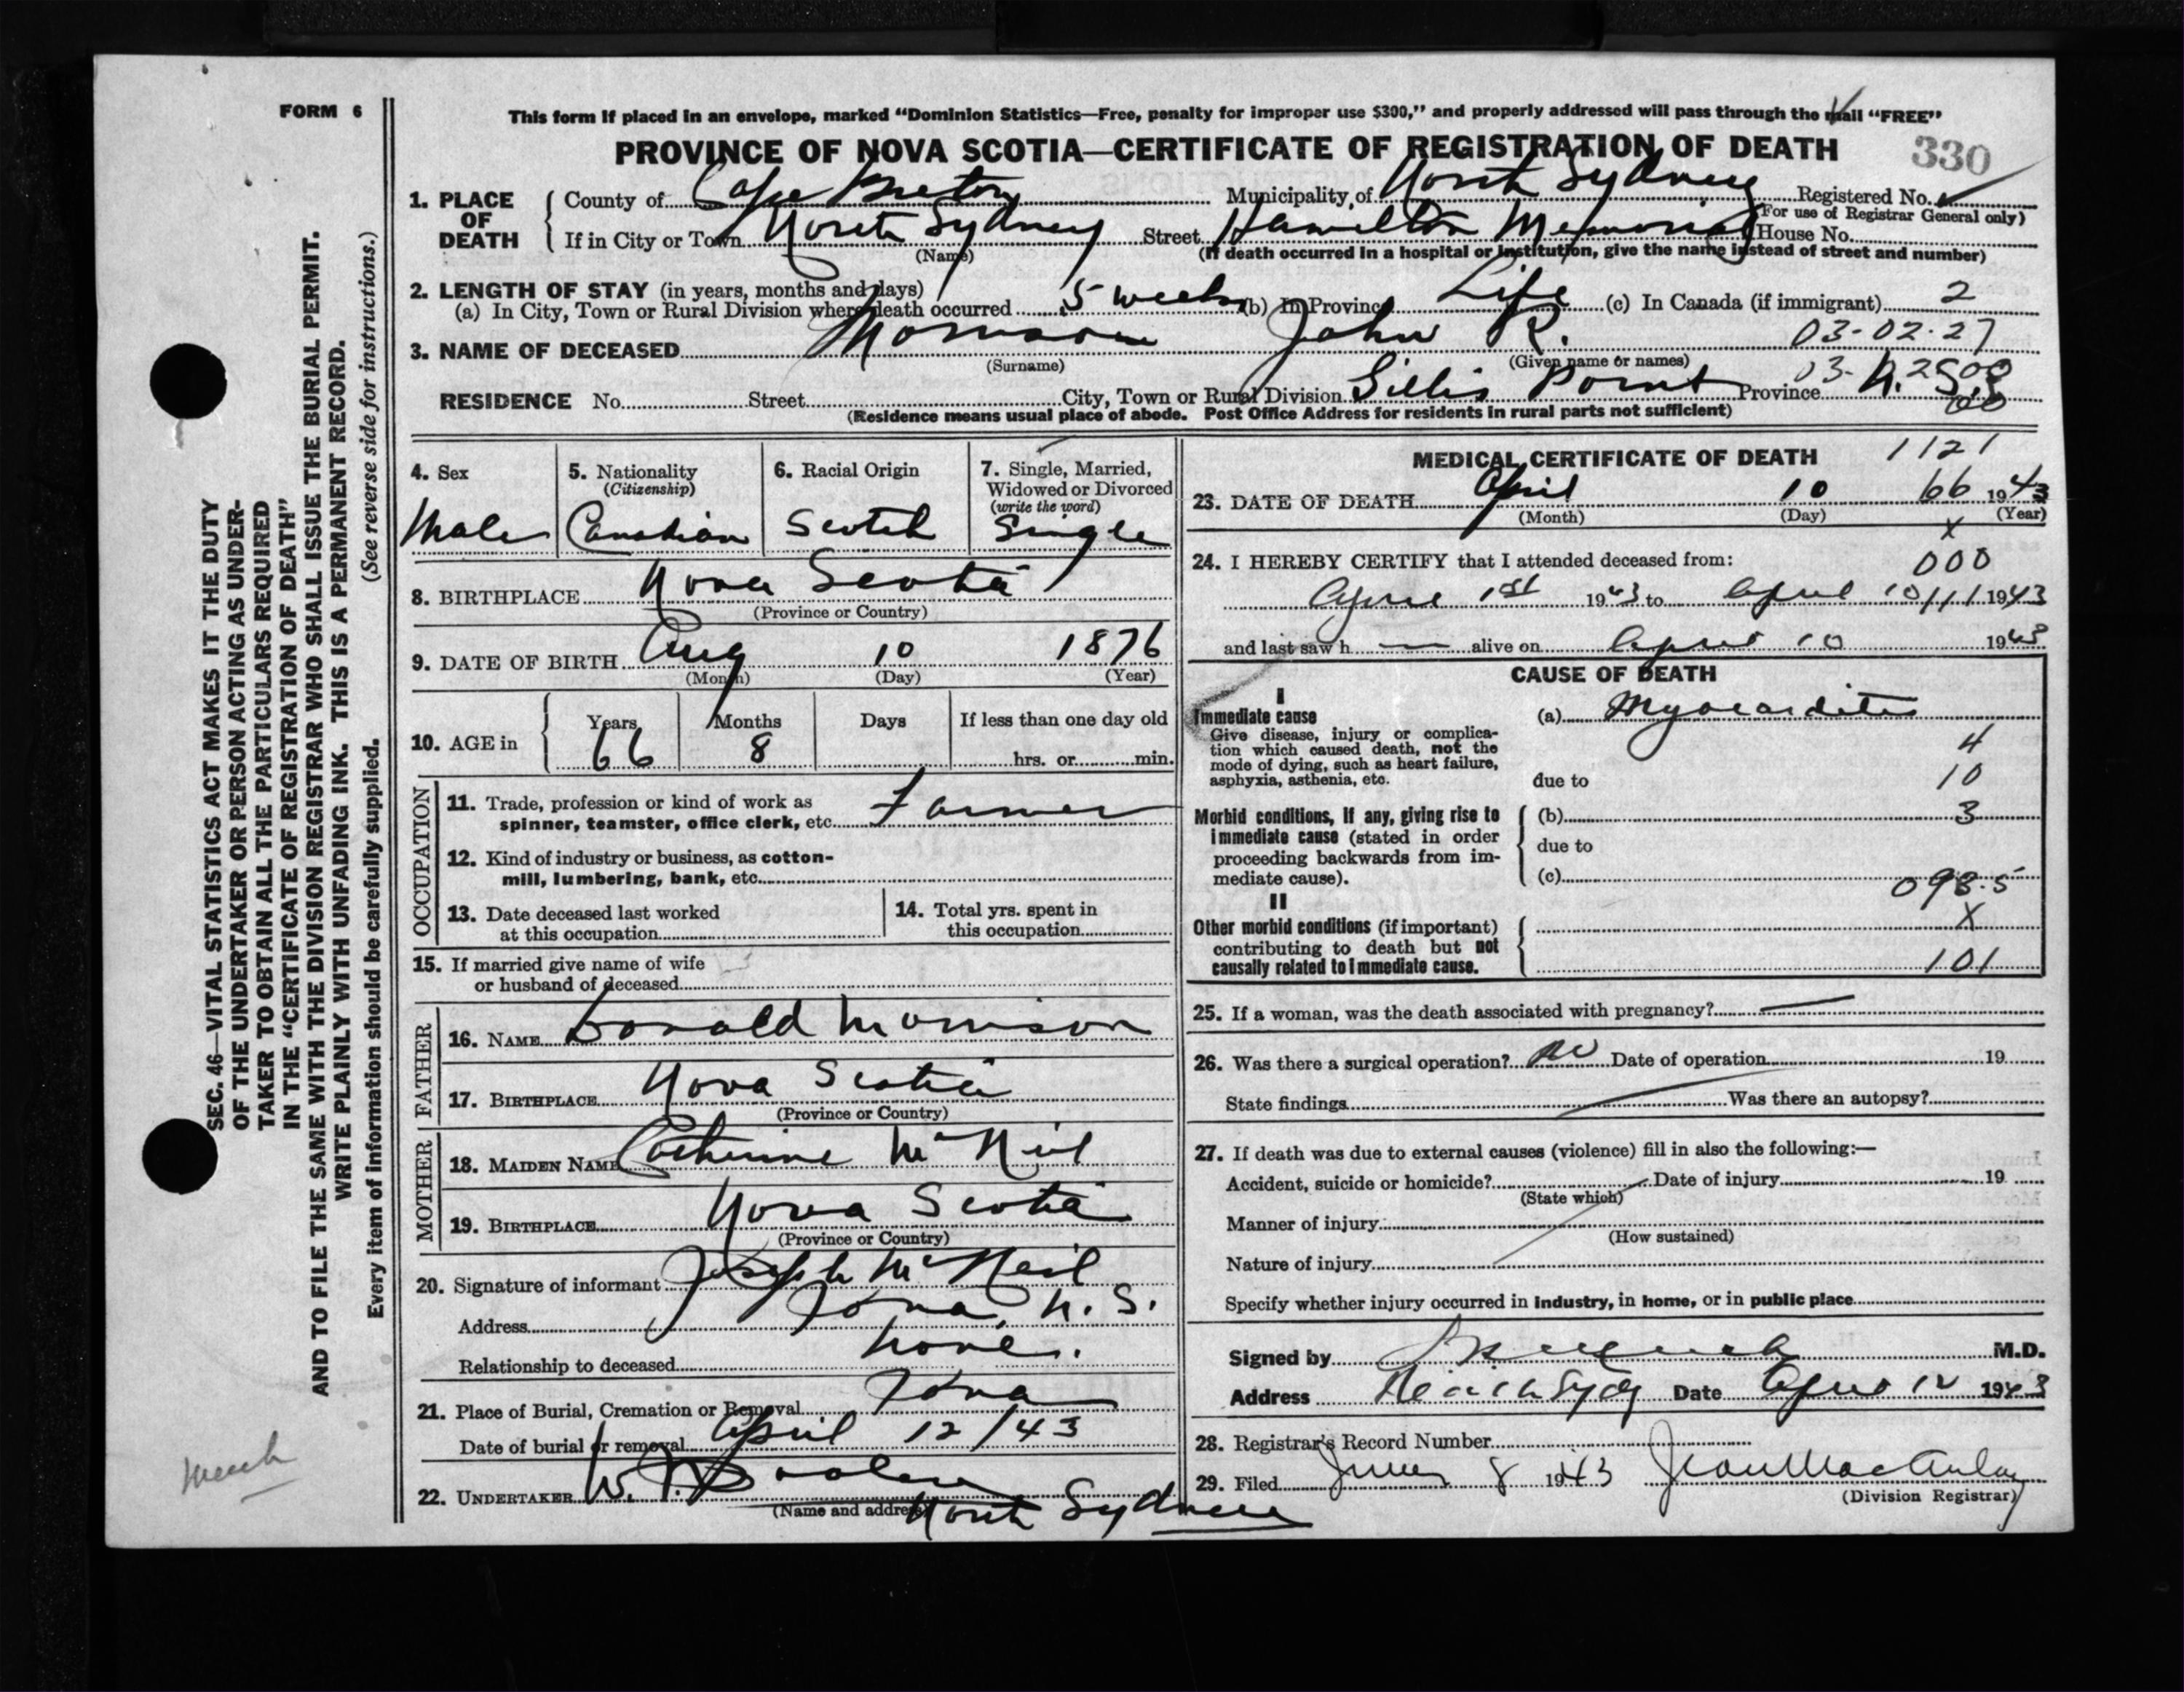 FORM 6
This form if placed in an envelope, marked “Dominion Statistics—Free, penalty for improper use $300,” and properly addressed will pass through the mail “FREE”
PROVINCE OF NOVA SCOTIA—CERTIFICATE OF REGISTRATION OF DEATH 330
1. PLACE OF DEATH
County of Cape Breton Municipality of North Sydney Registered No.
(For use of Registrar General only)
If in City or Town North Sydney Street Hamilton Memorial House No.
(Name) (If death occurred in a hospital or institution, give the name instead of street and number)
2. LENGTH OF STAY (in years, months and days)
(a) In City, Town or Rural Division where death occurred 5 weeks (b) In Province Life (c) In Canada (if immigrant) 2
03-02-27
3. NAME OF DECEASED Morrison John R.
(Surname) (Given name or names)
RESIDENCE No. Street City, Town or Rural Division Gillis Point Province N.S.
(Residence means usual place of abode. Post Office Address for residents in rural parts not sufficient)
4. Sex Male
5. Nationality (Citizenship) Canadian
6. Racial Origin Scotch
7. Single, Married, Widowed or Divorced (write the word) Single
8. BIRTHPLACE Nova Scotia
(Province or Country)
9. DATE OF BIRTH Aug 10 1876
(Month) (Day) (Year)
10. AGE in Years Months Days If less than one day old
66 8 hrs. or min.
OCCUPATION
11. Trade, profession or kind of work as spinner, teamster, office clerk, etc. Farmer
12. Kind of industry or business, as cotton-mill, lumbering, bank, etc.
13. Date deceased last worked at this occupation
14. Total yrs. spent in this occupation
15. If married give name of wife or husband of deceased
FATHER
16. NAME Donald Morrison
17. BIRTHPLACE Nova Scotia
(Province or Country)
MOTHER
18. MAIDEN NAME Catherine McNeil
19. BIRTHPLACE Nova Scotia
(Province or Country)
20. Signature of informant Joseph McNeil
Address Iona, N.S.
Relationship to deceased None.
21. Place of Burial, Cremation or Removal Iona
Date of burial or removal April 12/43
22. UNDERTAKER W.
(Name and address) North Sydney
MEDICAL CERTIFICATE OF DEATH 1121
23. DATE OF DEATH April 10 66 1943
(Month) (Day) (Year)
x
24. I HEREBY CERTIFY that I attended deceased from: 000
April 1st 1943 to April 10 111 1943
and last saw h alive on April 10 1943
CAUSE OF DEATH
I
Immediate cause (a) Myocarditis
Give disease, injury or complication which caused death, not the mode of dying, such as heart failure, asphyxia, asthenia, etc.
4
due to 10
Morbid conditions, if any, giving rise to immediate cause (stated in order proceeding backwards from immediate cause).
(b) 3
due to
(c)
093.5
II
Other morbid conditions (if important) contributing to death but not causally related to immediate cause.
X
101
25. If a woman, was the death associated with pregnancy? —
26. Was there a surgical operation? no Date of operation 19
State findings Was there an autopsy?
27. If death was due to external causes (violence) fill in also the following:—
Accident, suicide or homicide? Date of injury 19
(State which)
Manner of injury
(How sustained)
Nature of injury
Specify whether injury occurred in industry, in home, or in public place
Signed by M.D.
Address North Sydney Date April 12 1943
28. Registrar's Record Number
29. Filed June 8 1943 Jean MacAulay
(Division Registrar)
SEC. 46—VITAL STATISTICS ACT MAKES IT THE DUTY
OF THE UNDERTAKER OR PERSON ACTING AS UNDER-
TAKER TO OBTAIN ALL THE PARTICULARS REQUIRED
IN THE “CERTIFICATE OF REGISTRATION OF DEATH”
AND TO FILE THE SAME WITH THE DIVISION REGISTRAR WHO SHALL ISSUE THE BURIAL PERMIT.
WRITE PLAINLY WITH UNFADING INK. THIS IS A PERMANENT RECORD.
Every item of information should be carefully supplied. (See reverse side for instructions.)